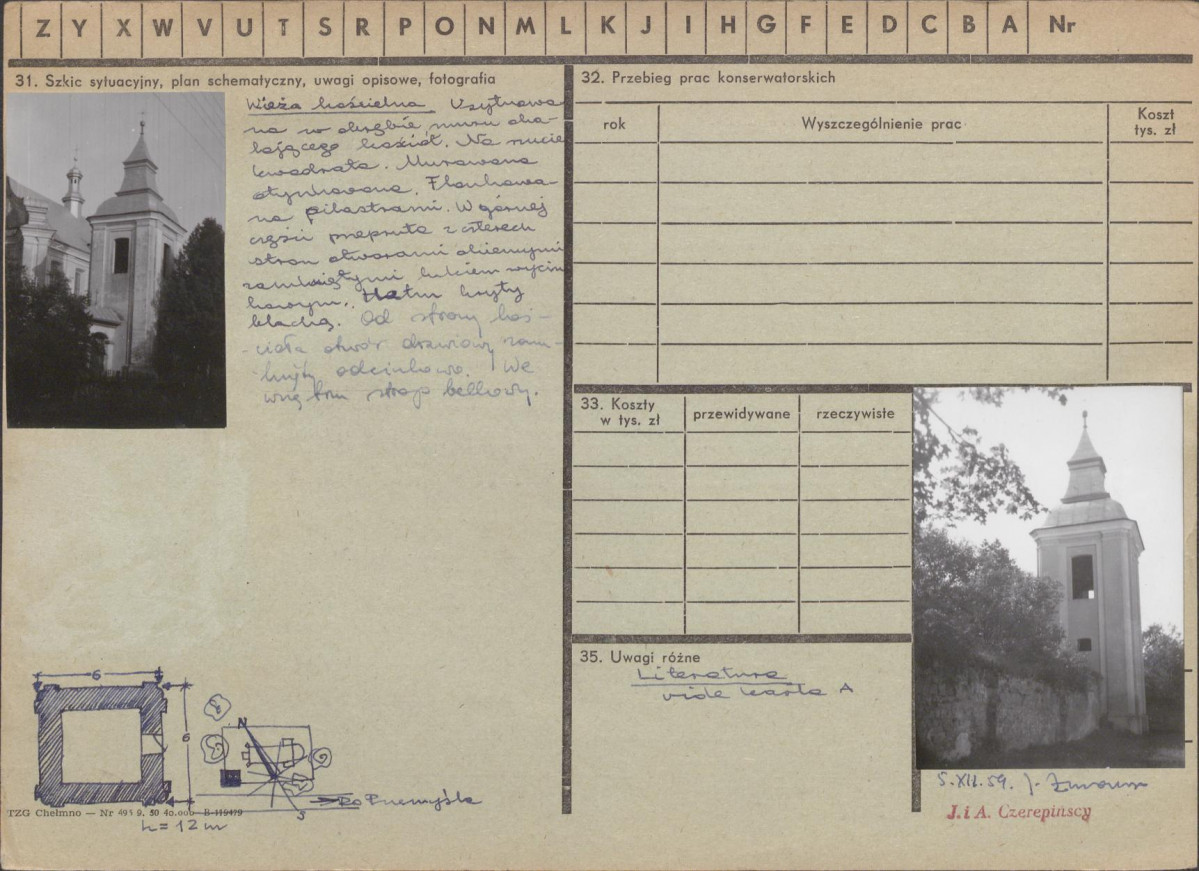 Z Y X W V U T S R P O N M L K J I H G F E D C B A Nr
31. Szkic sytuacyjny, plan schematyczny, uwagi opisowe, fotografia
Wieża kościelna. Usytuowa-
na w obrębie muru ota-
kającego kościół. Na rzucie
kwadratu. Murowana
otynkowana. Flankowa-
na pilastrami. W górnej
części mepruta z czterech
stron otworami okiennymi
zamkniętymi łukiem wycin
kowym. Hełm kryty
blachą. Od strony koś-
cioła otwór drzwiowy zam-
knięty odcinkowo. We
wnątrzu strop belkowy.
6
6
N
S
Do Przemyśla
TZG Chełmno — Nr 493 9. 50 40.000 B-119479
h = 12 m
32. Przebieg prac konserwatorskich
rok Wyszczególnienie prac Koszt
tys. zł
33. Koszty
w tys. zł przewidywane rzeczywiste
35. Uwagi różne
Literatura
vide karta A
5.XII.59. J.
J. i A. Czerepińscy